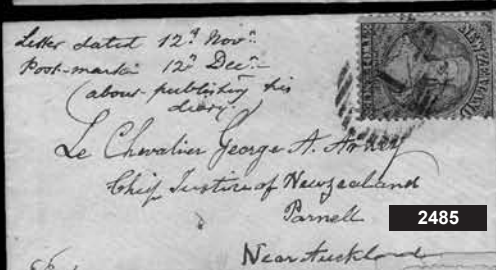 Letter dated 12th Novr.
Post-mark 12th Decr.
(about publishing his
diary)
Le Chevalier George A. Arney
Chief Justice of Newzealand
Parnell
2485
Near Auckland